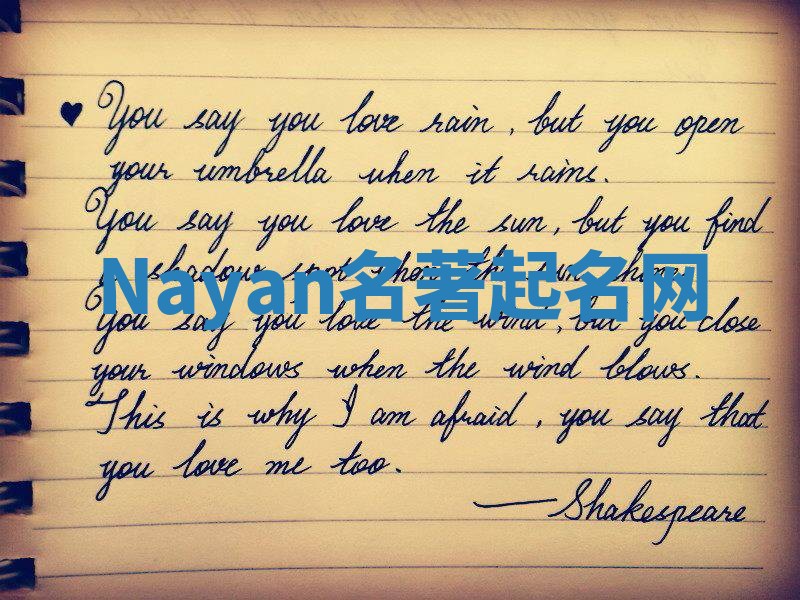 ♥ You say you love rain, but you open
your umbrella when it rains.
You say you love the sun, but you find
a shadow spot when the sun shines.
Nayan名著起名网
You say you love the wind, but you close
your windows when the wind blows.
This is why I am afraid, you say that
you love me too.
—Shakespeare